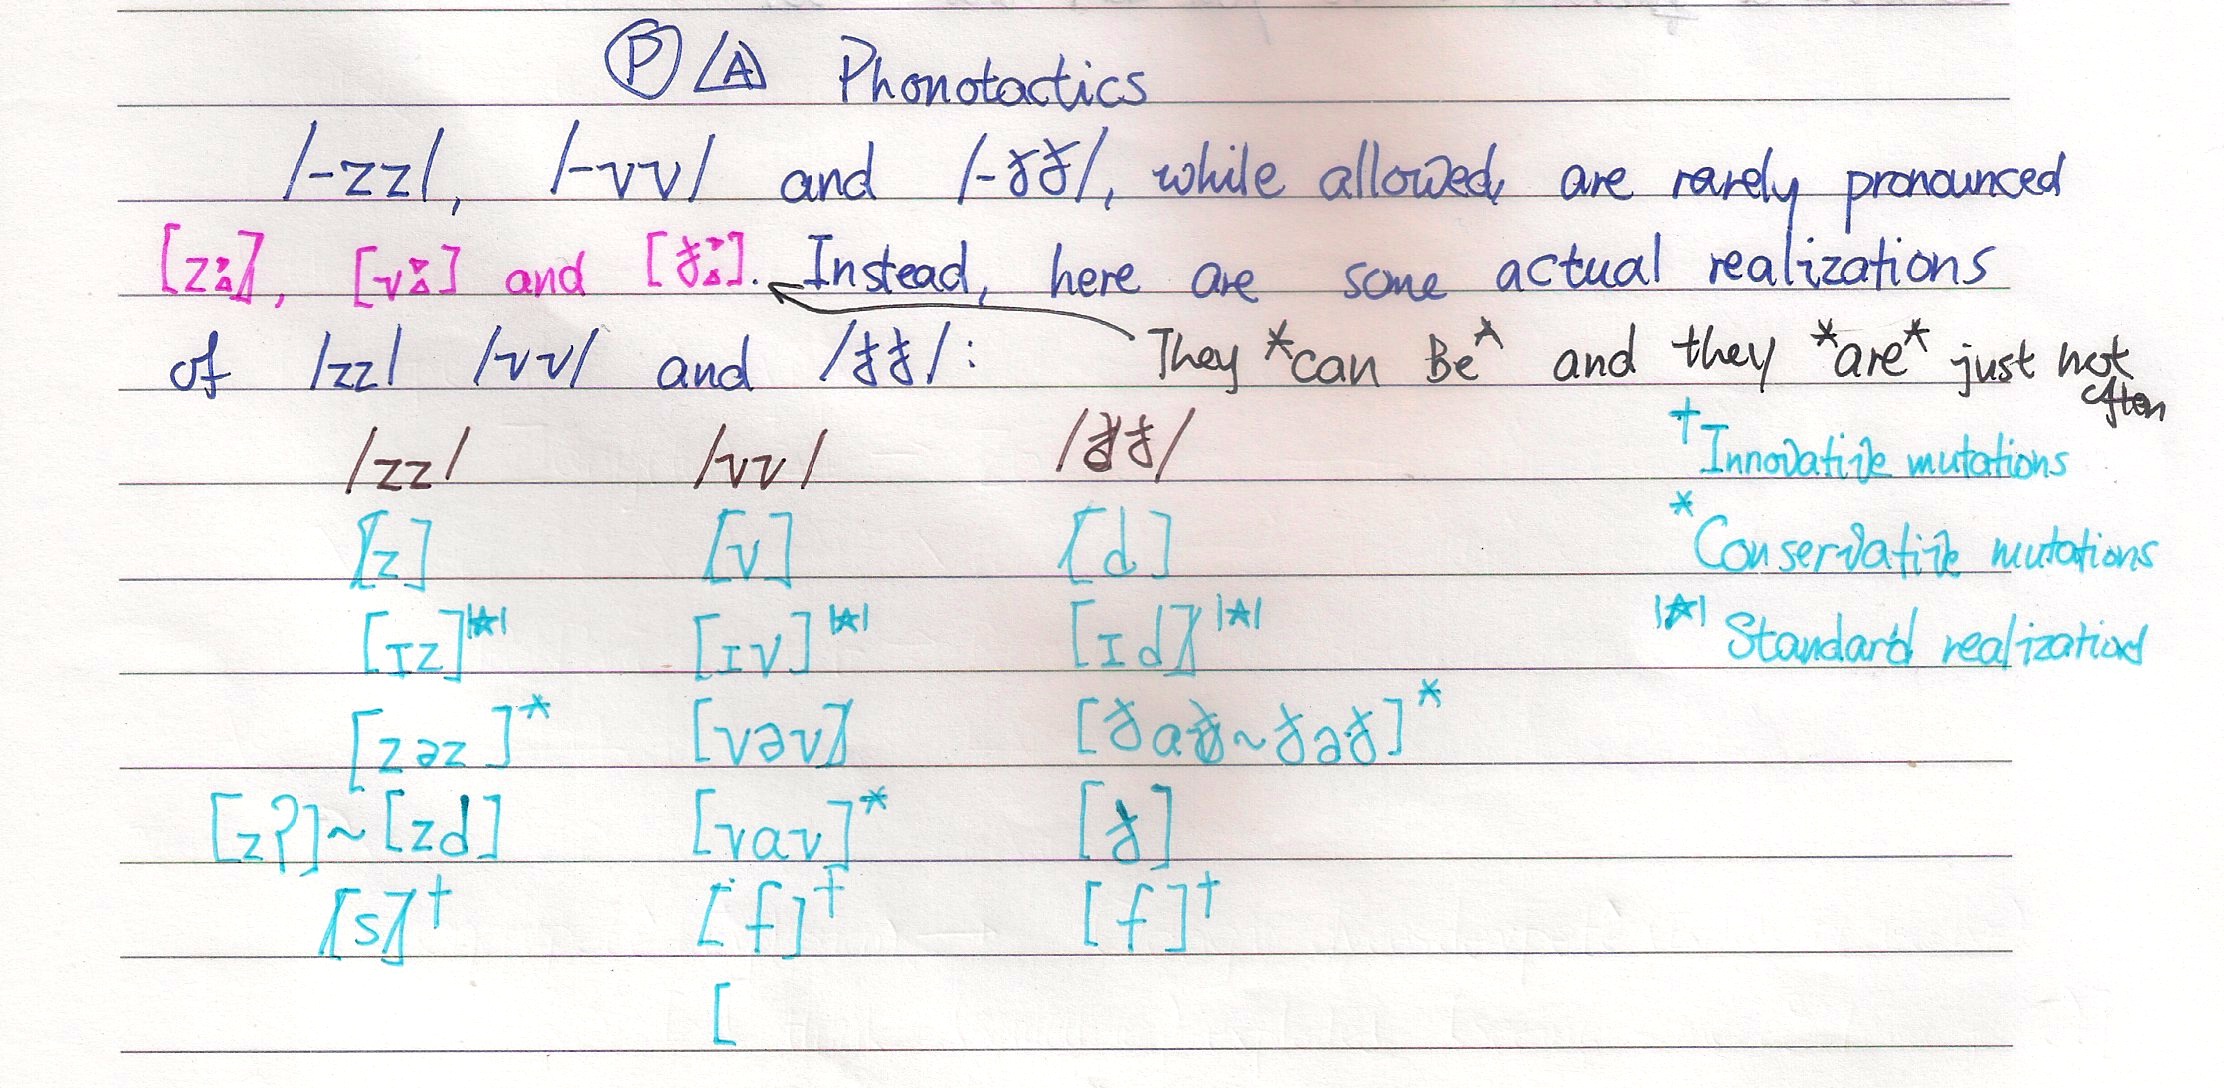 Ⓟ/A Phonotactics
/-zz/, /-vv/ and /-ɟɟ/, while allowed, are rarely pronounced
[zː], [vː] and [ɟː]. Instead, here are some actual realizations
of /zz/ /vv/ and /ɟɟ/: They *can Be* and they *are* just not often
/zz/ /vv/ /ɟɟ/ †Innovative mutations
[z] [v] [d] *Conservative mutations
[ɪz]|☆| [ɪv]|☆| [ɪd]|☆| |☆| Standard realization
[zəz]* [vəv] [ɟaɟ~ɟəɟ]*
[zʔ]~[zd] [vav]* [ɟ]
[s]† [f]† [f]†
[